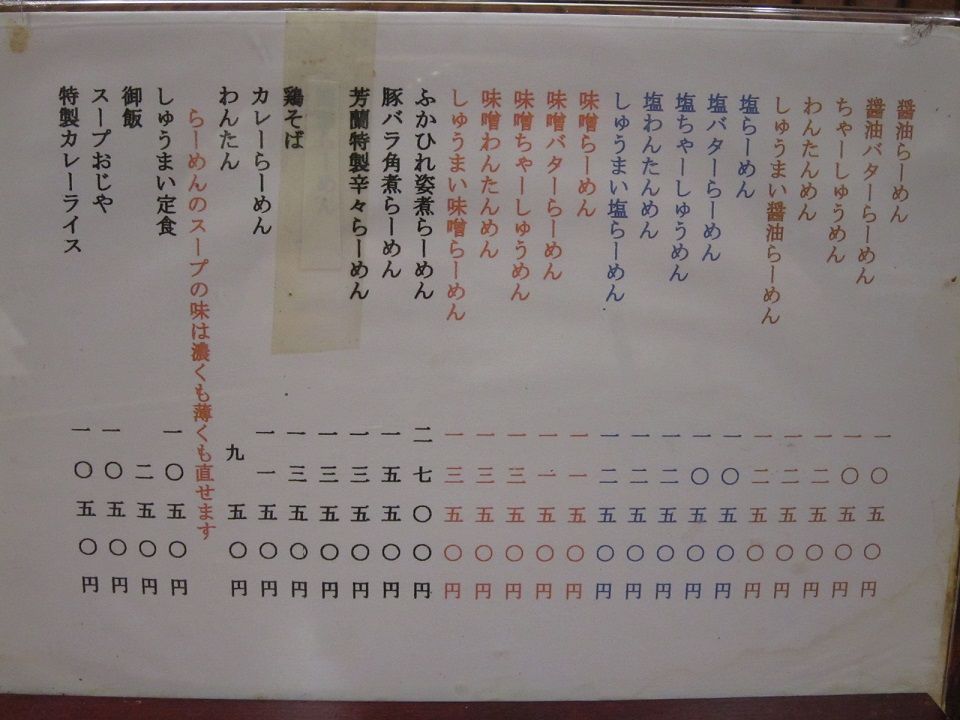 醤油らーめん 一〇五〇円
醤油バターらーめん 一〇五〇円
ちゃーしゅうめん 一二五〇円
わんたんめん 一二五〇円
しゅうまい醤油らーめん 一二五〇円
塩らーめん 一〇五〇円
塩バターらーめん 一〇五〇円
塩ちゃーしゅうめん 一二五〇円
塩わんたんめん 一二五〇円
しゅうまい塩らーめん 一二五〇円
味噌らーめん 一一五〇円
味噌バターらーめん 一一五〇円
味噌ちゃーしゅうめん 一三五〇円
味噌わんたんめん 一三五〇円
しゅうまい味噌らーめん 一三五〇円
ふかひれ姿煮らーめん 二七〇〇円
豚バラ角煮らーめん 一五五〇円
芳蘭特製辛々らーめん 一三五〇円
一三五〇円
鶏そば 一三五〇円
カレーらーめん 一一五〇円
わんたん 九五〇円
らーめんのスープの味は濃くも薄くも直せます
しゅうまい定食 一〇五〇円
御飯 二五〇円
スープおじや 一〇五〇円
特製カレーライス 一〇五〇円